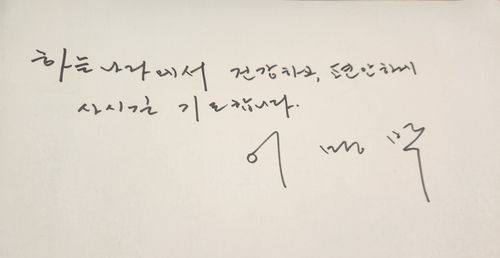 하늘나라에서 건강하고, 편안하게
사시길 기도합니다.
이명박